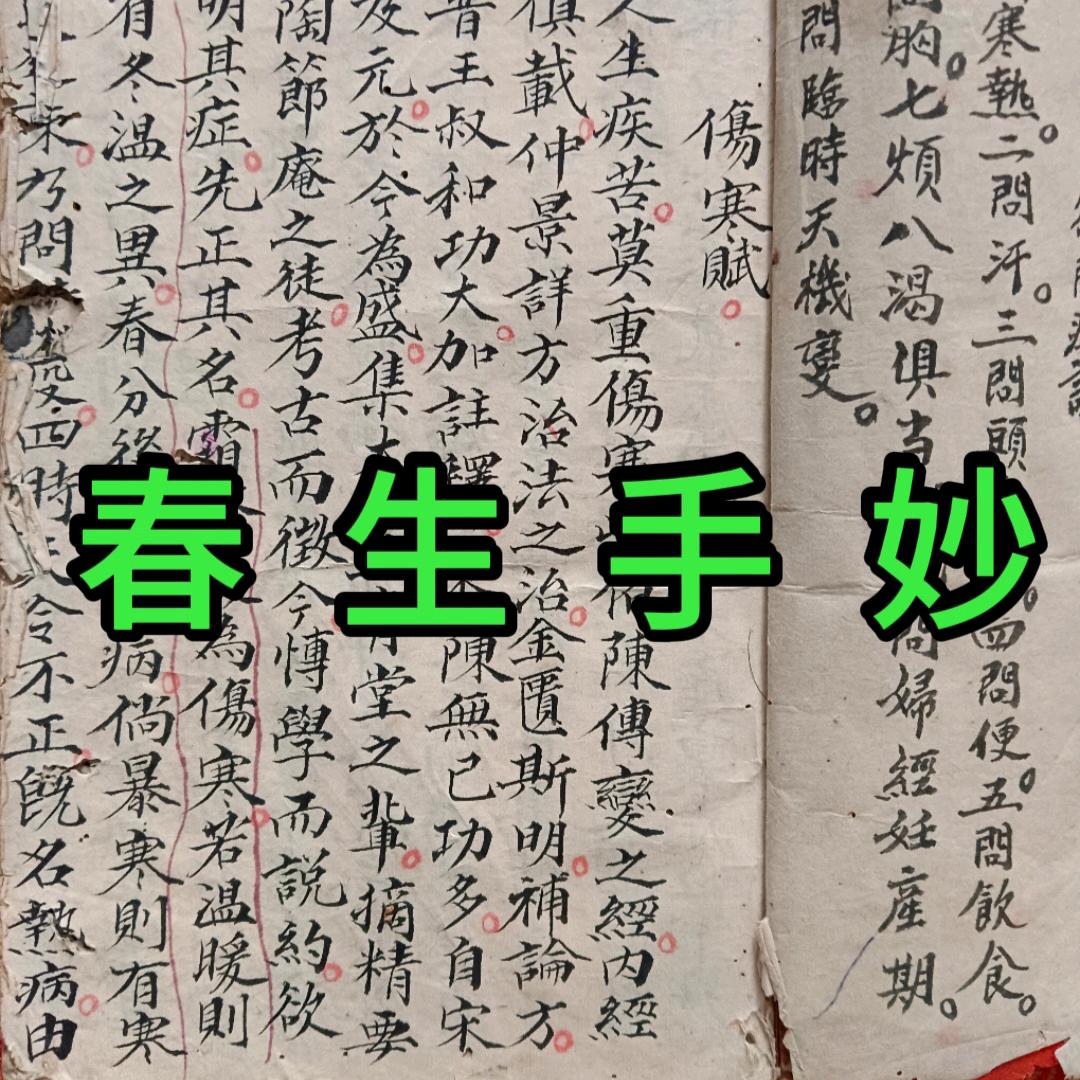 寒熱。二問汗。三問頭
四問便。五問飲食。
胸。七煩八渴俱当
問婦經妊產期。
問臨時天機變。
傷寒賦。
人生疾苦。莫重傷寒
陳傳變之經。內經
俱載。仲景詳方治法之治。金匱斯明。補論方。
晋王叔和功大。加註釋
陳無已功多。自宋
及元。於今為盛。集大
堂之輩。摘精要
陶節庵之徒。考古而徵今。愽學而説約。欲
明其症。先正其名。霜
為傷寒。若温暖則
有冬温之異。春分後
病。倘暴寒則有寒
乃問
四時
令不正。既名熱病。由
春生手妙